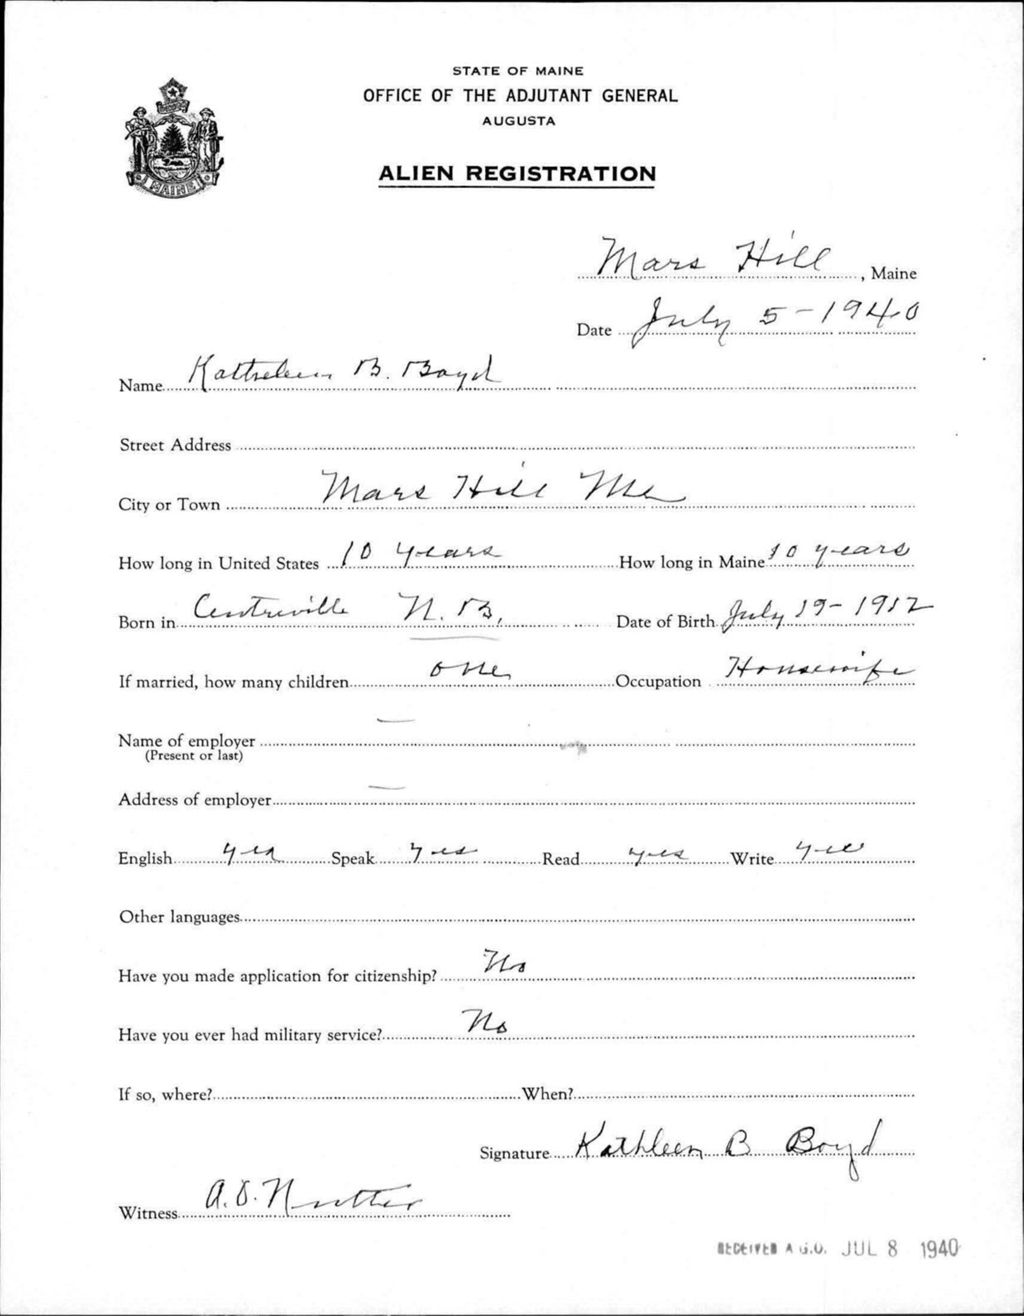 STATE OF MAINE
OFFICE OF THE ADJUTANT GENERAL
AUGUSTA
ALIEN REGISTRATION
MAINE
Mars Hill, Maine
Date July 5-1940
Name Kathleen B. Boyd
Street Address
City or Town Mars Hill Me
How long in United States 10 years How long in Maine 10 years
Born in Centreville N.B. Date of Birth July 19-1912
If married, how many children one Occupation Housewife
Name of employer —
(Present or last)
Address of employer —
English yes Speak yes Read yes Write yes
Other languages
Have you made application for citizenship? No
Have you ever had military service? No
If so, where? When?
Signature Kathleen B Boyd
Witness A. D. Nutter
RECEIVED A.G.O. JUL 8 1940